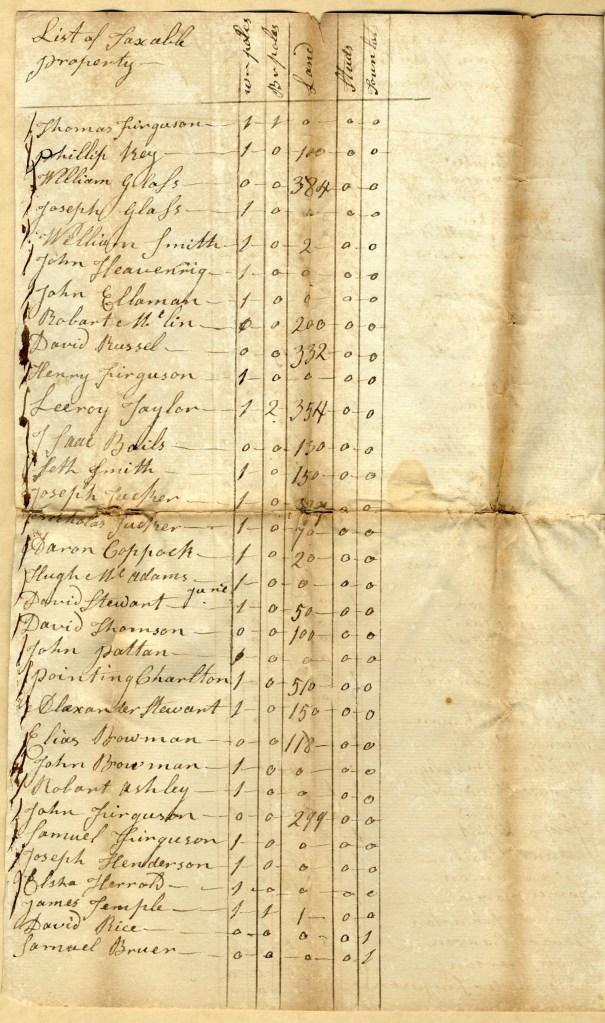 List of Taxable
property—
W poles
B poles
Land
Studs
Thomas firguson— 1 1 0 0 0
phillip Key 1 0 100 0 0
William Glass— 0 0 384 0 0
Joseph Glass 1 0 0 0 0
William Smith— 1 0 2 0 0
John Heavenrig— 1 0 0 0 0
John Ellaman— 1 0 0 0 0
Robart Mclin 0 0 200 0 0
David Russel— 0 0 332 0 0
Henry firguson 1 0 0 0 0
Leeroy Taylor— 1 2 354 0 0
Isaac Bails 0 0 130 0 0
Seth Smith— 1 0 150 0 0
Joseph Tucker— 1 0 0 0
Nicholas Tucker— 1 0 70 0 0
Daron Coppock— 1 0 20 0 0
Hugh Mc adams— 1 0 0 0 0
David Stewart 1 0 50 0 0
David Thomson— 0 0 100 0 0
John pattan— 0 0 0 0
pointing Charlton 1 0 510 0 0
Elaxander Stewart 1 0 150 0 0
Elias Bowman— 0 0 118 0 0
John Browman— 1 0 0 0 0
Robart Ashley— 1 0 0 0 0
John firguson— 0 0 299 0 0
Samuel firguson 1 0 0 0 0
Joseph Henderson 1 0 0 0 0
Elsha Herrold— 1 0 0 0 0
James Temple— 1 1 1 0 0
David Rice— 0 0 0 0 1
Samuel Bruer— 0 0 0 0 1